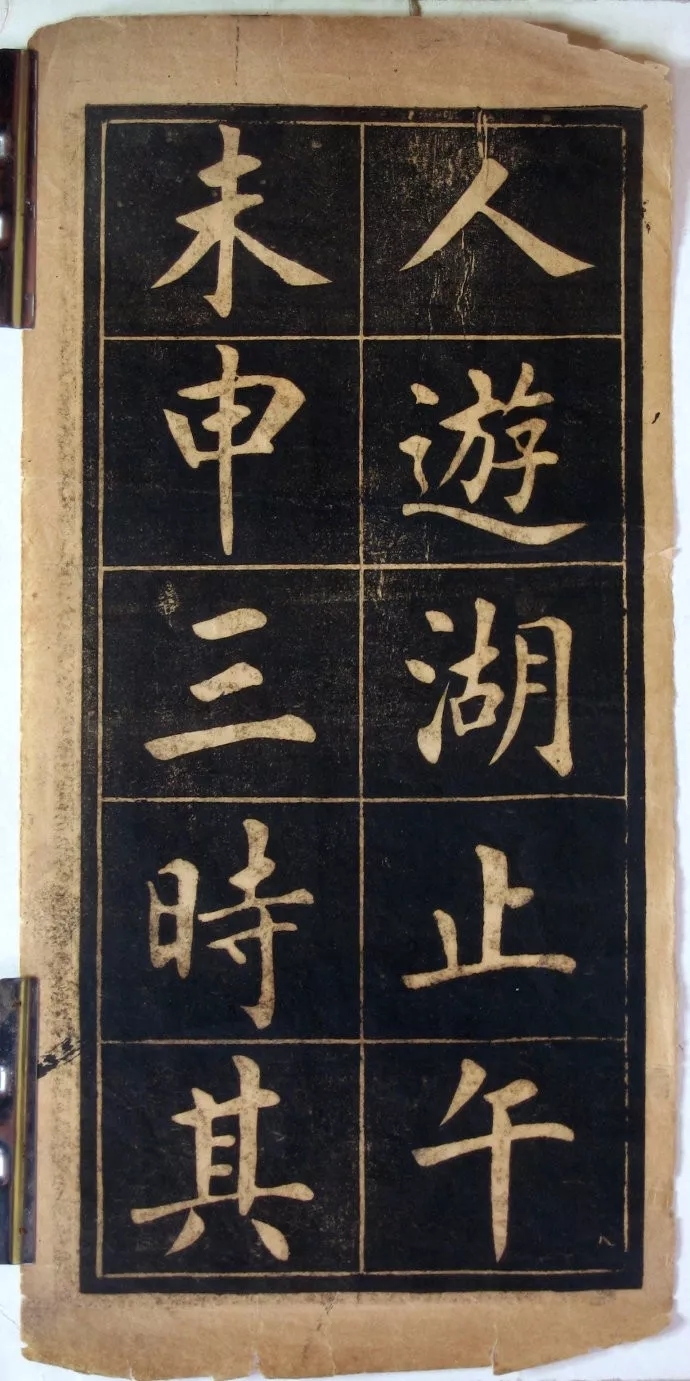 人遊湖止午
未申三時其